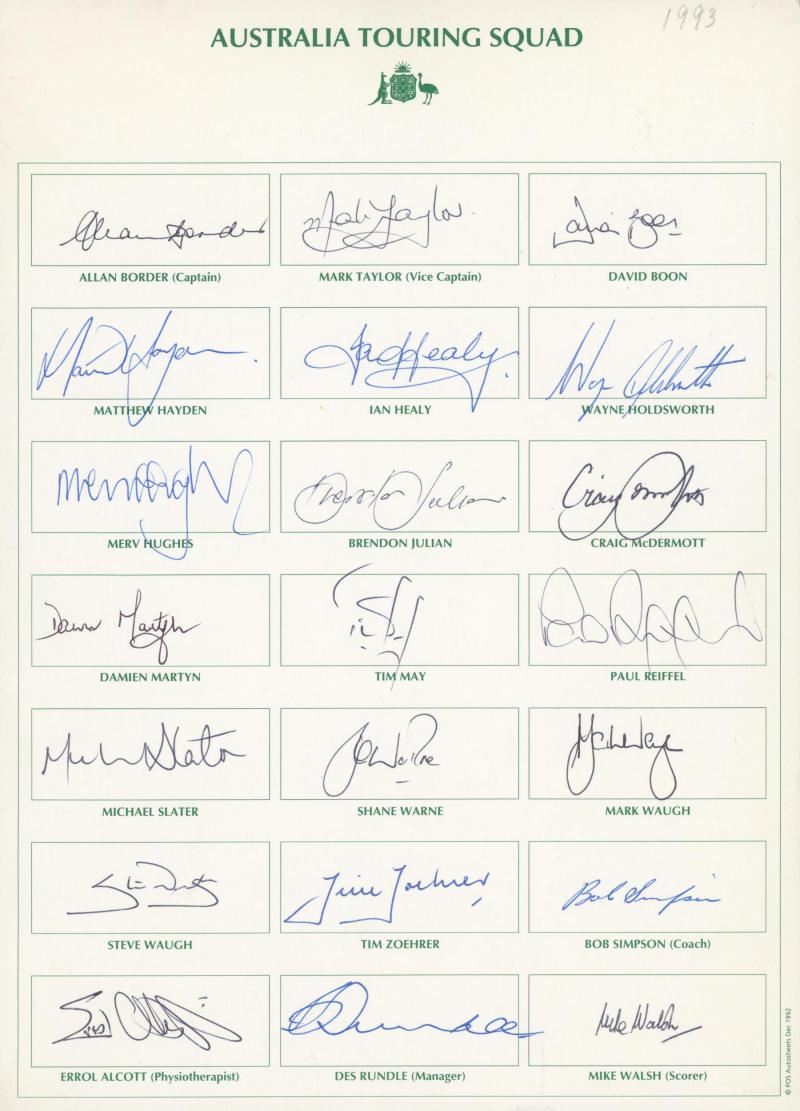 1993
AUSTRALIA TOURING SQUAD
Allan Border
Mark Taylor
David Boon
ALLAN BORDER (Captain)
MARK TAYLOR (Vice Captain)
DAVID BOON
Ian Healy
MATTHEW HAYDEN
IAN HEALY
WAYNE HOLDSWORTH
Brendon Julian
MERV HUGHES
BRENDON JULIAN
CRAIG McDERMOTT
Damien Martyn
DAMIEN MARTYN
TIM MAY
PAUL REIFFEL
MICHAEL SLATER
SHANE WARNE
MARK WAUGH
Tim Zoehrer
Bob Simpson
STEVE WAUGH
TIM ZOEHRER
BOB SIMPSON (Coach)
Mike Walsh
ERROL ALCOTT (Physiotherapist)
DES RUNDLE (Manager)
MIKE WALSH (Scorer)
© POS Autosheets Dec 1992